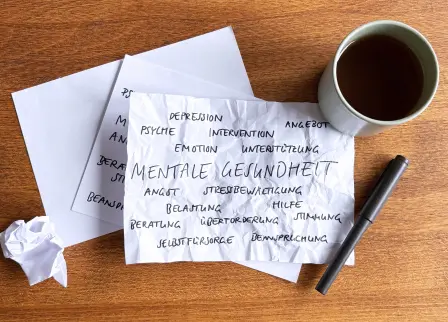 DEPRESSION
PSYCHE INTERVENTION ANGEBOT
EMOTION UNTERSTÜTZUNG
MENTALE GESUNDHEIT
ANGST STRESSBEWÄLTIGUNG
BELASTUNG HILFE
BERATUNG ÜBERFORDERUNG STIMMUNG
SELBSTFÜRSORGE BEANSPRUCHUNG